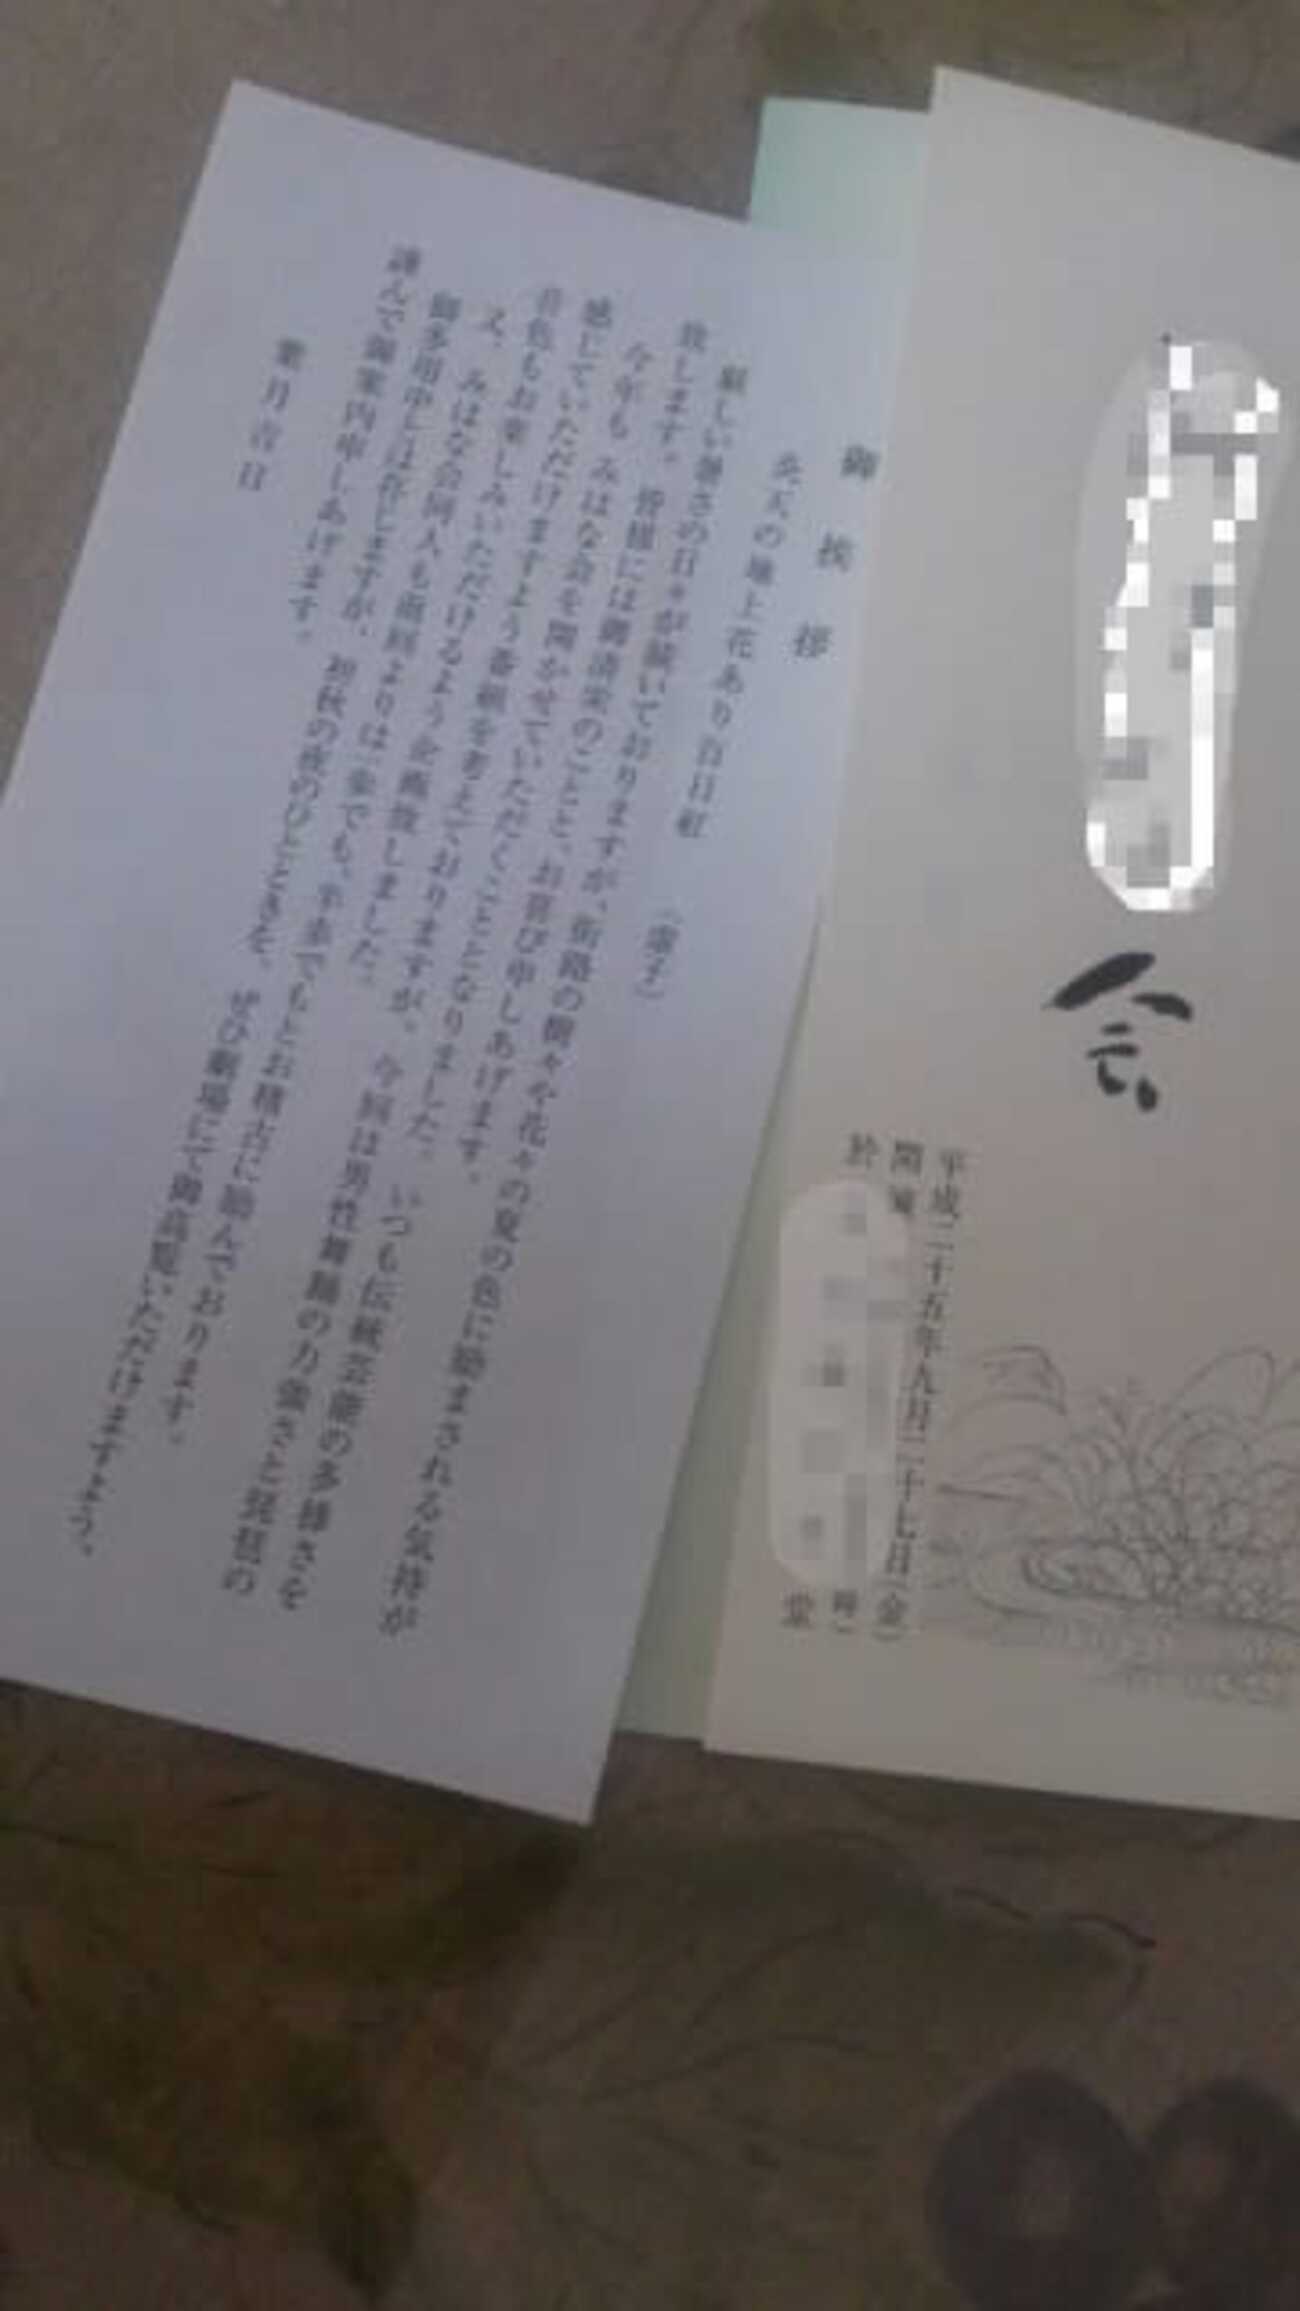 会
平成二十五年九月二十七日(金)
開演
於
堂
御挨拶
炎天の地上花あり百日紅
厳しい暑さの日々が続いておりますが、街路の樹々や花々の夏の色に励まされる気持が
致します。皆様には御清栄のことと、お喜び申しあげます。
今年も みはな会を開かせていただくこととなりました。いつも伝統芸能の多様さを
感じていただけますよう番組を考えておりますが、今回は男性舞踊の力強さと
音色もお楽しみいただけるよう企画致しました。
みはな会同人も
お稽古に励んでおります。
御多用中とは存じますが、初秋の夜のひとときを、
劇場にて御高覧いただけますよう、
謹んで御案内申しあげます。
葉月吉日